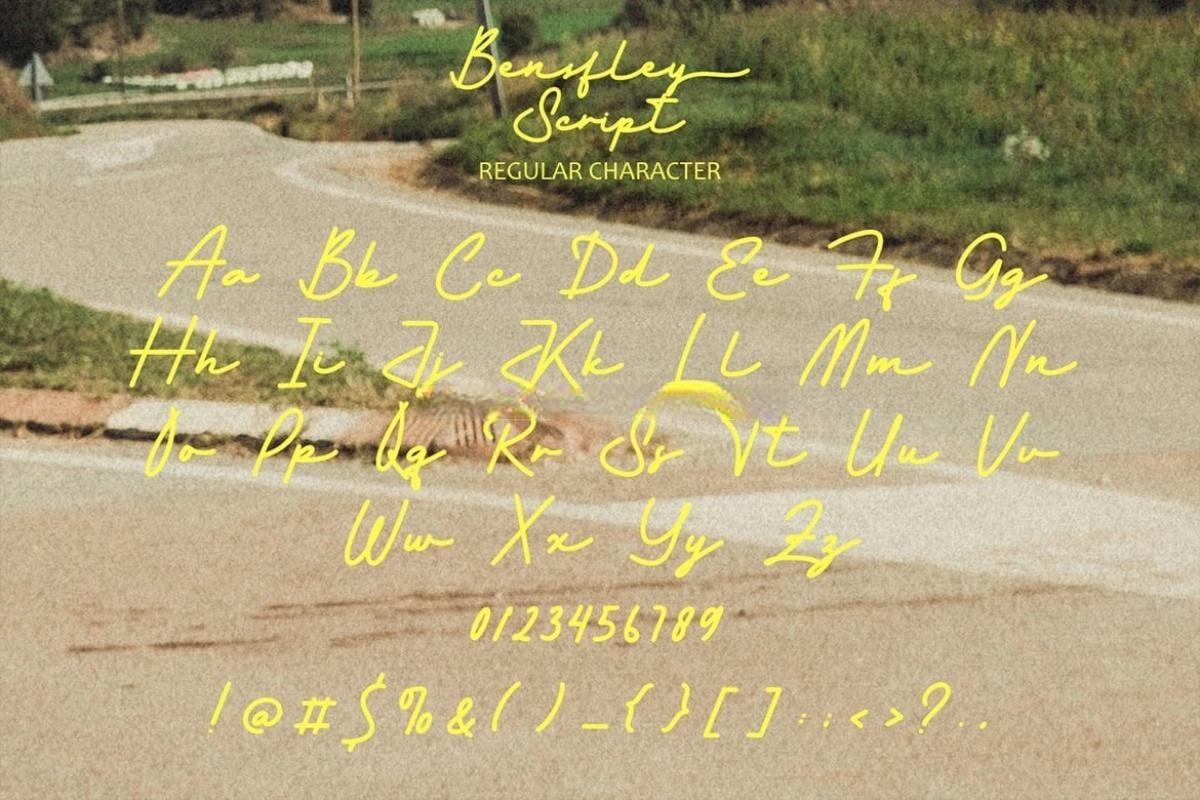 Bensfley
Script
REGULAR CHARACTER
Aa Bb Cc Dd Ee Ff Gg
Hh Ii Jj Kk Ll Mm Nn
Oo Pp Qq Rr Ss Tt Uu Vv
Ww Xx Yy Zz
0123456789
!@#$%&()_{}[]:;<>?..